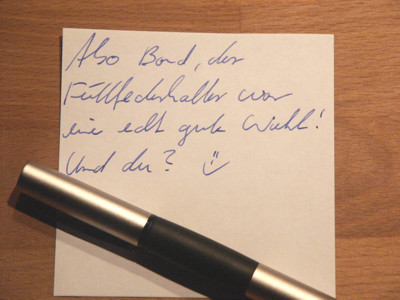 Also Bond, der
Füllfederhalter war
eine echt gute Wahl!
Und du? :)